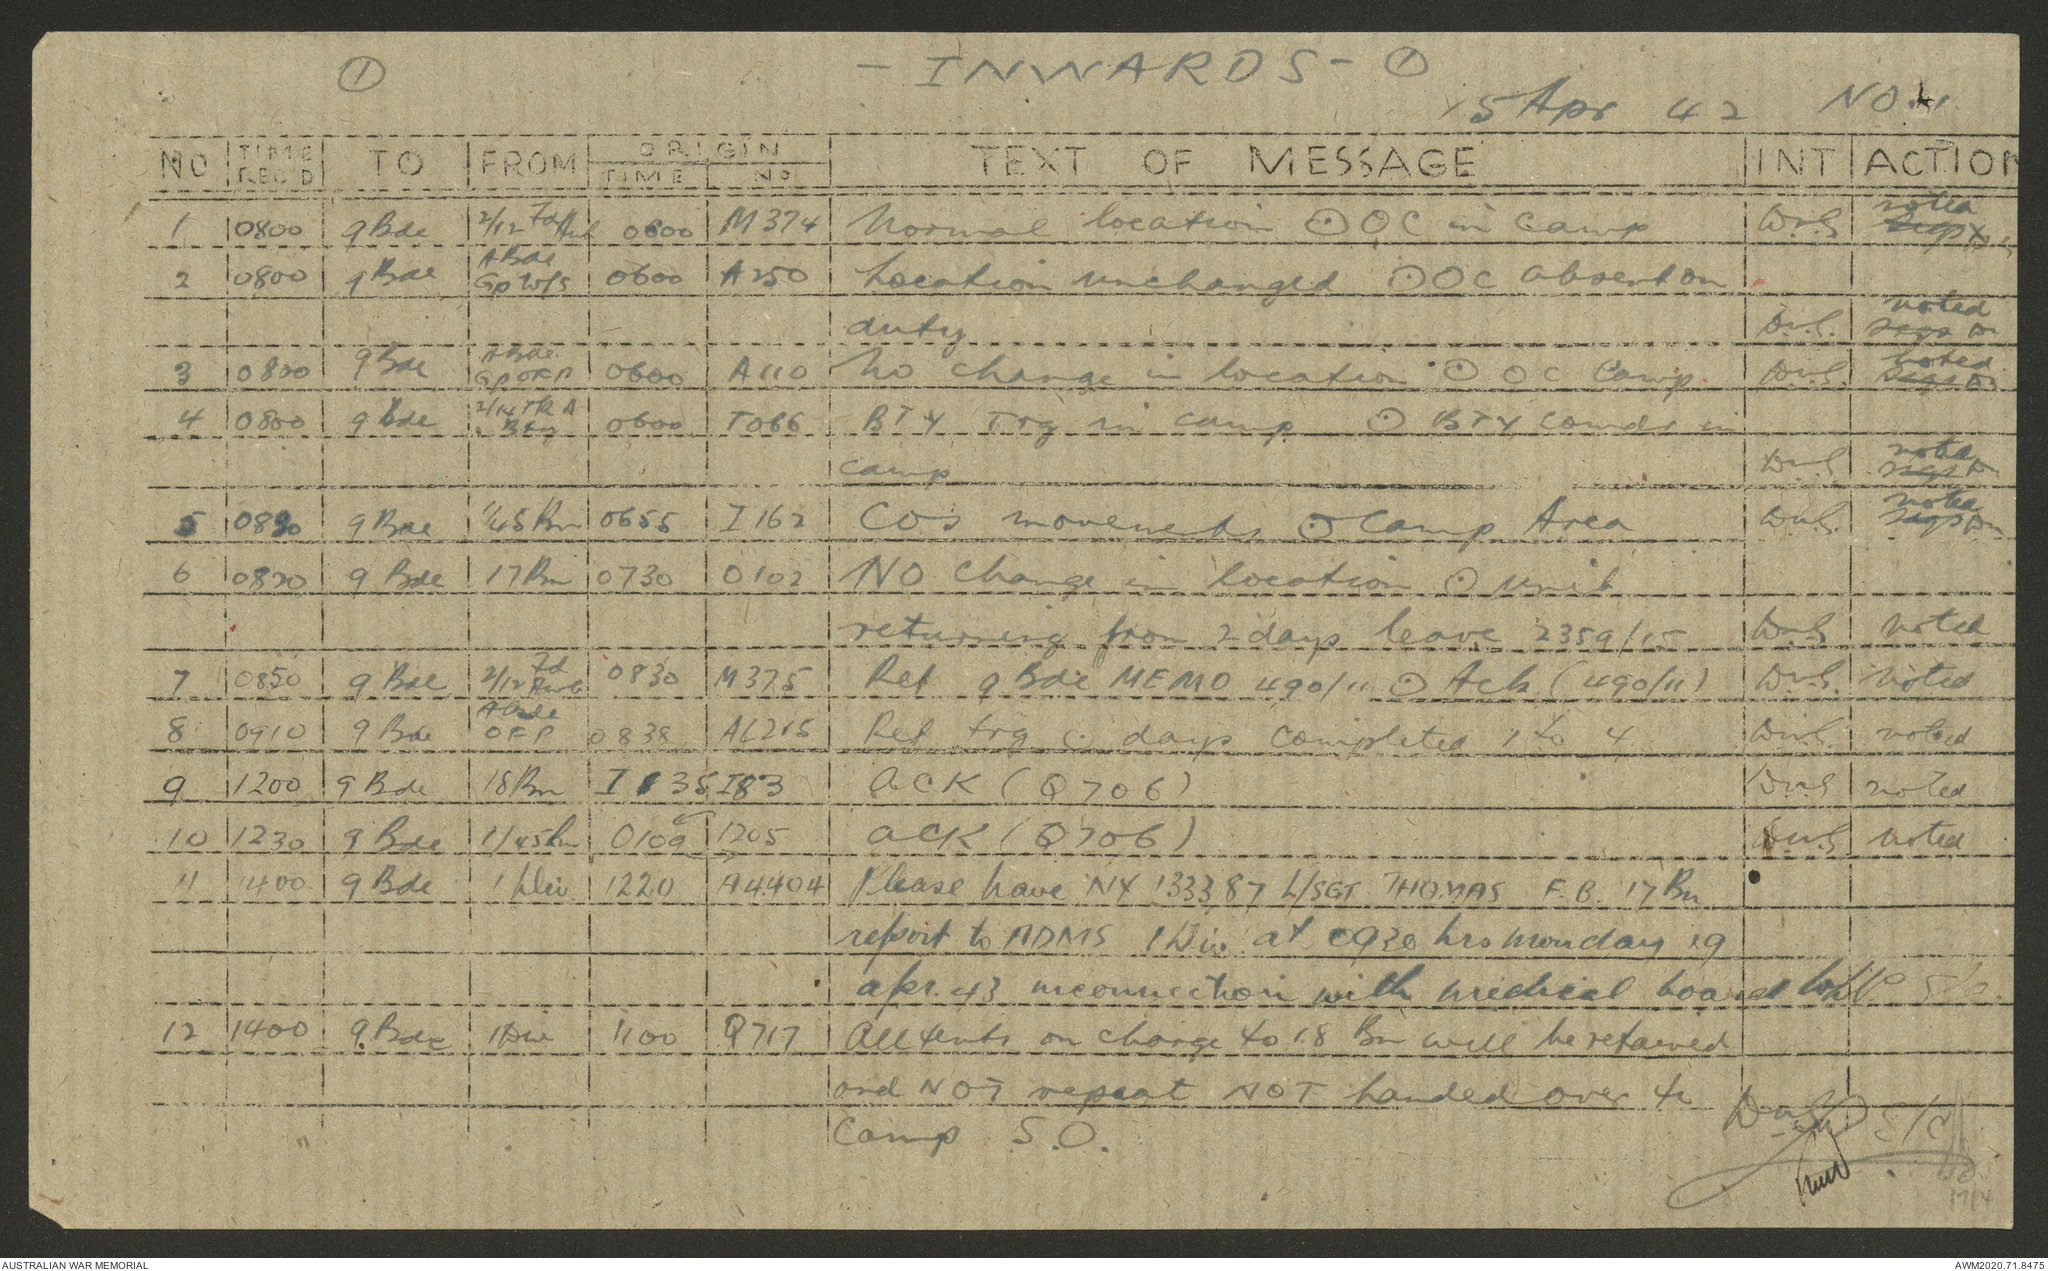 ① - INWARDS - ①
15 Apr 42 NO. 1.
NO TIME REC'D TO FROM ORIGIN TIME NO TEXT OF MESSAGE INT ACTION
1 0800 9 Bde 2/12 Fd Amb 0600 M374 Normal location ⊙ OC in camp DWS noted
2 0800 9 Bde A Bde Gp W/S 0600 A250 Location unchanged ⊙ OC absent on
duty DWS. noted
3 0800 9 Bde A Bde Gp OFP 0600 A110 No change in location ⊙ OC Camp DWS. noted
4 0800 9 Bde 2/14 TK A Bty 0600 T066 BTY Trg in camp ⊙ BTY Comdr in
camp DWS noted
5 0830 9 Bde 1/45 Bn 0655 I162 COs movements ⊙ Camp Area DWS. noted
6 0820 9 Bde 17 Bn 0730 O102 NO change in location ⊙ unit
returning from 2 days leave 2359/15 DWS noted
7 0850 9 Bde 2/12 Fd Amb 0830 M375 Ref 9 Bde MEMO 490/11 ⊙ Ack (490/11) DWS. noted
8 0910 9 Bde A Bde OFP 0838 AL215 Ref trg ⊙ days completed 1 to 4 DWS. noted
9 1200 9 Bde 18 Bn 1135 I83 ACK (Q706) DWS noted
10 1230 9 Bde 1/45 Bn 0109 1205 ACK (Q706) DWS noted
11 1400 9 Bde 1 Div 1220 A4404 Please have NX 133387 L/SGT THOMAS F.B. 17 Bn
report to ADMS 1 Div at 0930 hrs monday 19
apr. 43 in connection with medical board
12 1400 9 Bde 1 Div 1100 Q717 All tents on charge to 18 Bn will be retained
and NOT repeat NOT handed over to
Camp S.O. S/C
17/4
AUSTRALIAN WAR MEMORIAL
AWM2020.71.8475